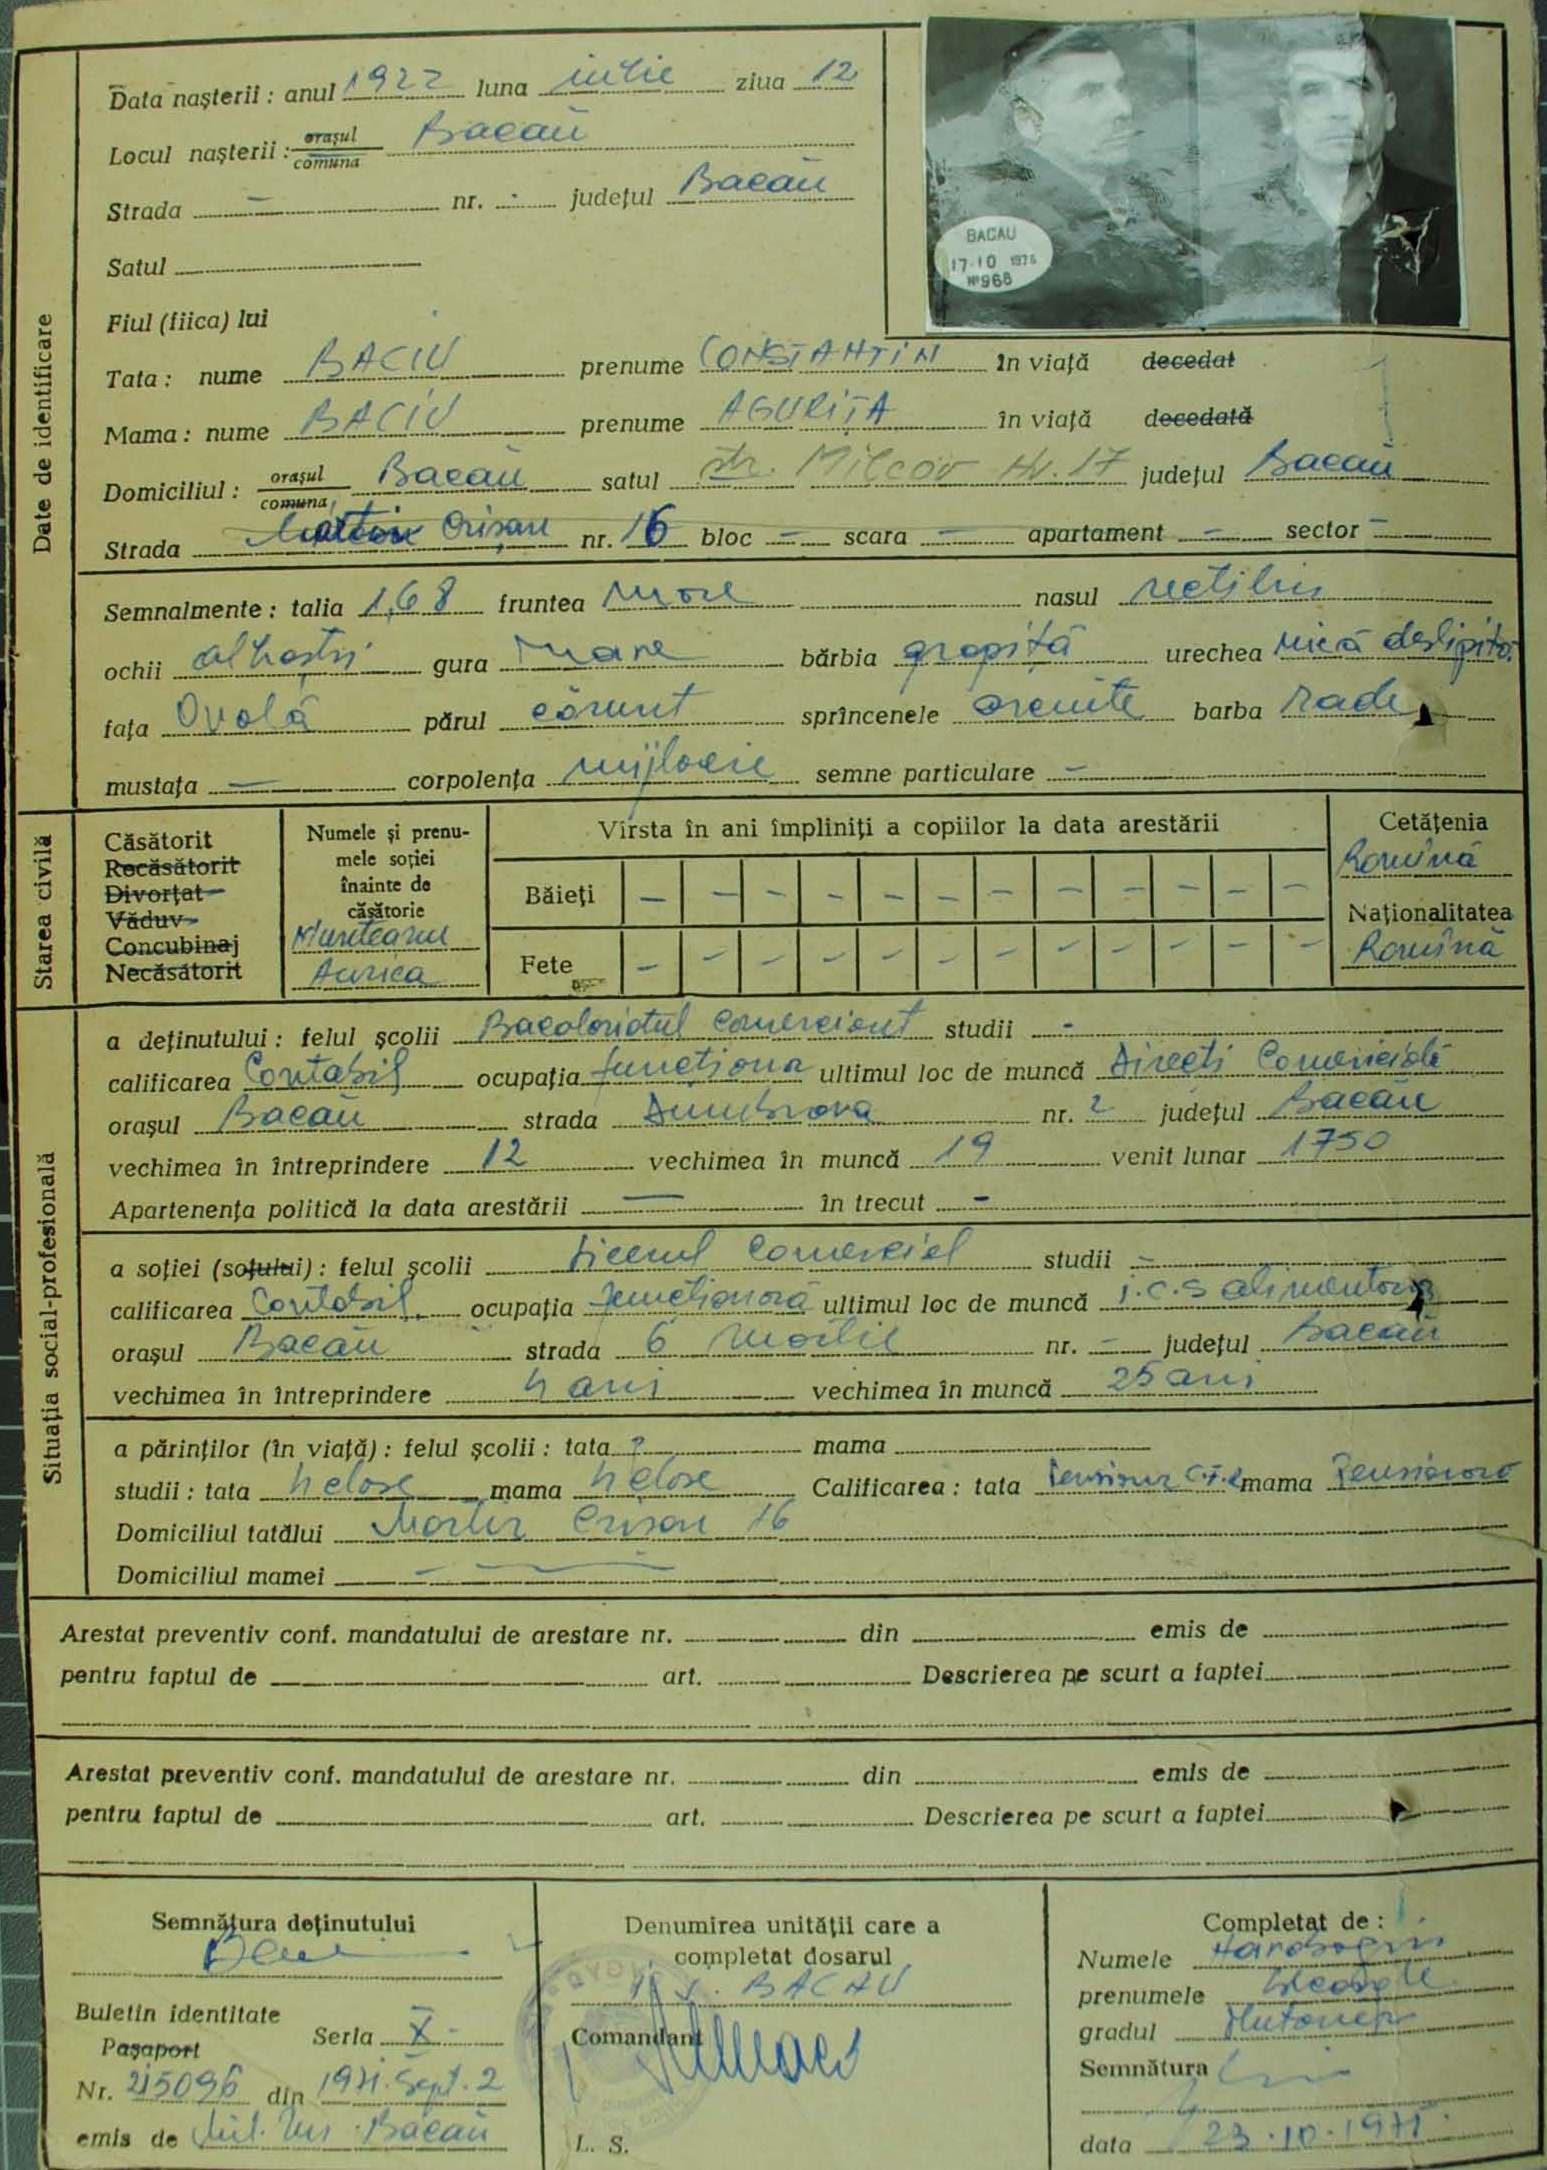 Data nașterii : anul 1922 luna iulie ziua 12
Locul nașterii : orașul Bacău
comuna
Strada – nr. - județul Bacău
Satul
Fiul (fiica) lui
Tata : nume BACIU prenume CONSTANTIN în viață decedat
Mama : nume BACIU prenume AGURIȚA în viață decedată
Domiciliul : orașul Bacău satul str. Milcov Nr. 17 județul Bacău
comuna
Strada Martir Crișan nr. 16 bloc – scara – apartament – sector –
Semnalmente : talia 1,68 fruntea mare nasul rectiliu
ochii albaștri gura mare bărbia gropiță urechea mică deslipită
fața Ovală părul cărunt sprîncenele arcuite barba rade
mustața – corpolența mijlocie semne particulare –
Date de identificare
BACAU
17·10 1975
Nº 968
Căsătorit
Recăsătorit
Divorțat
Văduv
Concubinaj
Necăsătorit
Numele și prenu-
mele soției
înainte de
căsătorie
Munteanu
Aurica
Vîrsta în ani împliniți a copiilor la data arestării
Băieți – – – – – – – – – – – –
Fete – – – – – – – – – – – –
Cetățenia
Romînă
Naționalitatea
Romînă
Starea civilă
a deținutului : felul școlii Bacaloriatul comerciant studii -
calificarea Contabil ocupația funcționar ultimul loc de muncă Direcți Comercială
orașul Bacău strada Dumbrava nr. 2 județul Bacău
vechimea în întreprindere 12 vechimea în muncă 19 venit lunar 1750
Apartenența politică la data arestării — în trecut -
a soției (soțului) : felul școlii Liceul Comercial studii –
calificarea Contabil ocupația funcționară ultimul loc de muncă i.c.s alimentara
orașul Bacău strada 6 Martie nr. – județul Bacău
vechimea în întreprindere 4 ani vechimea în muncă 25 ani
a părinților (în viață) : felul școlii : tata ? mama
studii : tata 4 clase mama 4 clase Calificarea : tata Pensionar C.F.R mama Pensionară
Domiciliul tatălui Martir Crișan 16
Domiciliul mamei –
Situația social-profesională
Arestat preventiv conf. mandatului de arestare nr. din emis de
pentru faptul de art. Descrierea pe scurt a faptei
Arestat preventiv conf. mandatului de arestare nr. din emis de
pentru faptul de art. Descrierea pe scurt a faptei
Semnătura deținutului
Buletin identitate
Pașaport Seria X
Nr. 215096 din 1971. Sept. 2
emis de Mil. Bacău
Denumirea unității care a
completat dosarul
BACAU
Comandant
L. S.
Completat de :
Numele
prenumele
gradul Plutonier
Semnătura
data 23.10.1975